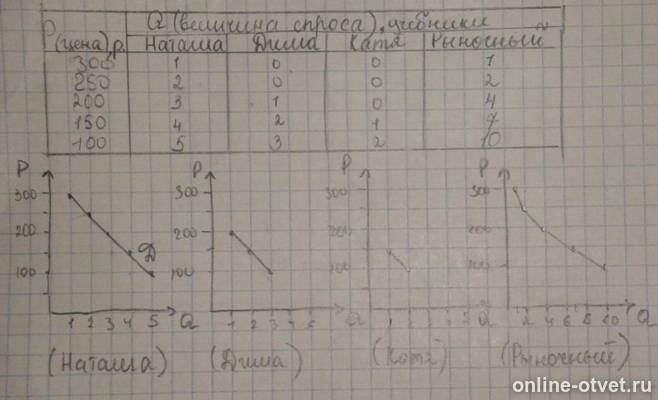 Q (величина спроса), учебники
P (цена) р. Наташа Дима Катя Рыночный
300 1 0 0 1
250 2 0 0 2
200 3 1 0 4
150 4 2 1 7
100 5 3 2 10
P P P P
300 300 300 300
200 Д 200 200 200
100 100 100 100
1 2 3 4 5 Q 1 2 3 Q 1 2 Q 2 4 6 8 10
(Наташа) (Дима) (Катя) (Рыночный)
online-otvet.ru